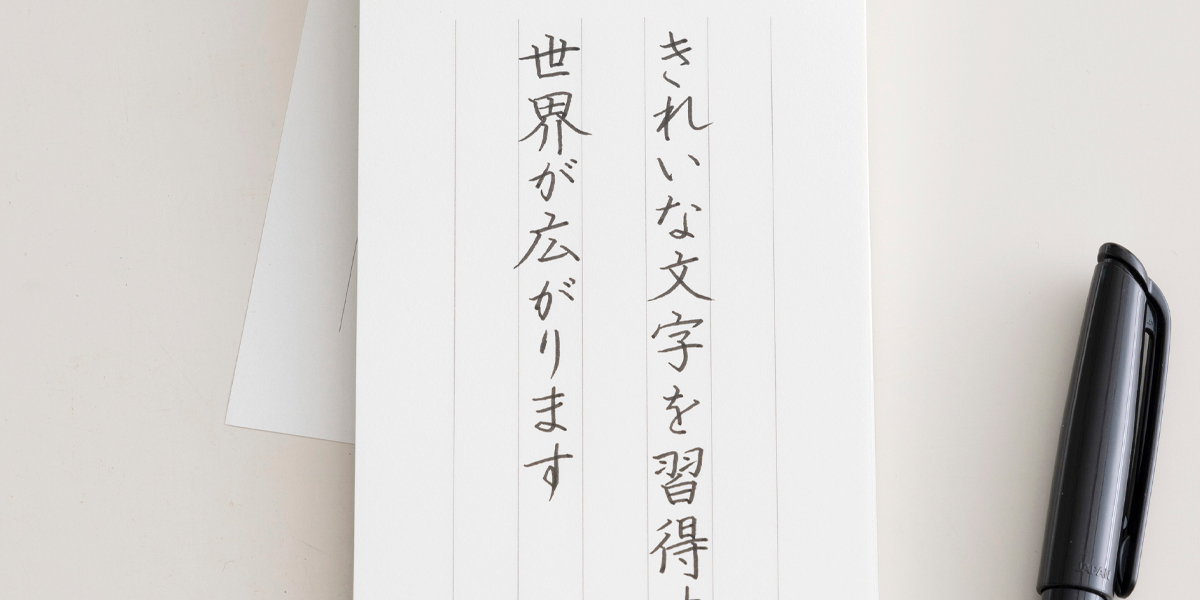 きれいな文字を習得
世界が広がります
JAPAN